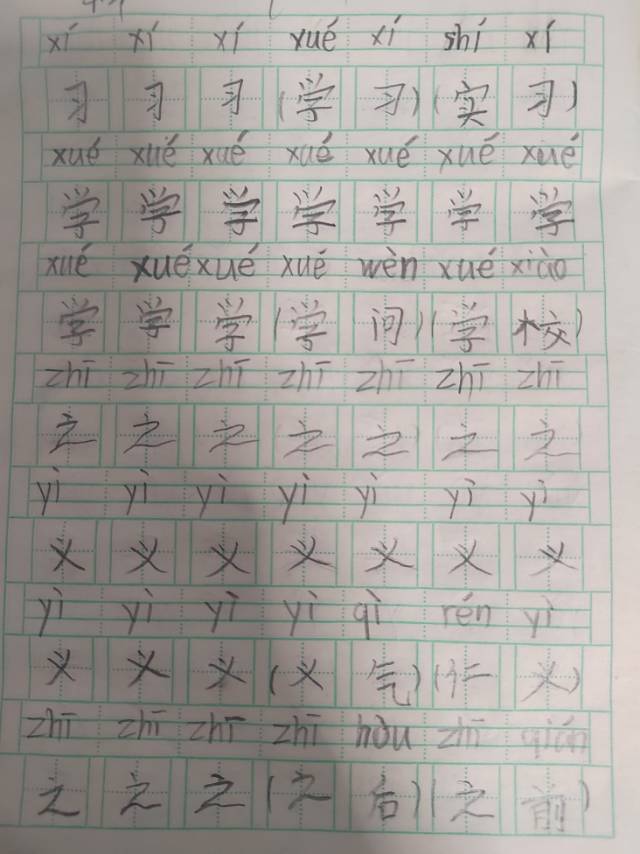 xí xí xí xué xí shí xí
习 习 习 (学 习) (实 习)
xué xué xué xué xué xué xué
学 学 学 学 学 学 学
xué xué xué xué wèn xué xiào
学 学 学 (学 问) (学 校)
zhī zhī zhī zhī zhī zhī zhī
之 之 之 之 之 之 之
yì yì yì yì yì yì yì
义 义 义 义 义 义 义
yì yì yì yì qì rén yì
义 义 义 (义 气) (仁 义)
zhī zhī zhī zhī hòu zhī qián
之 之 之 (之 后) (之 前)